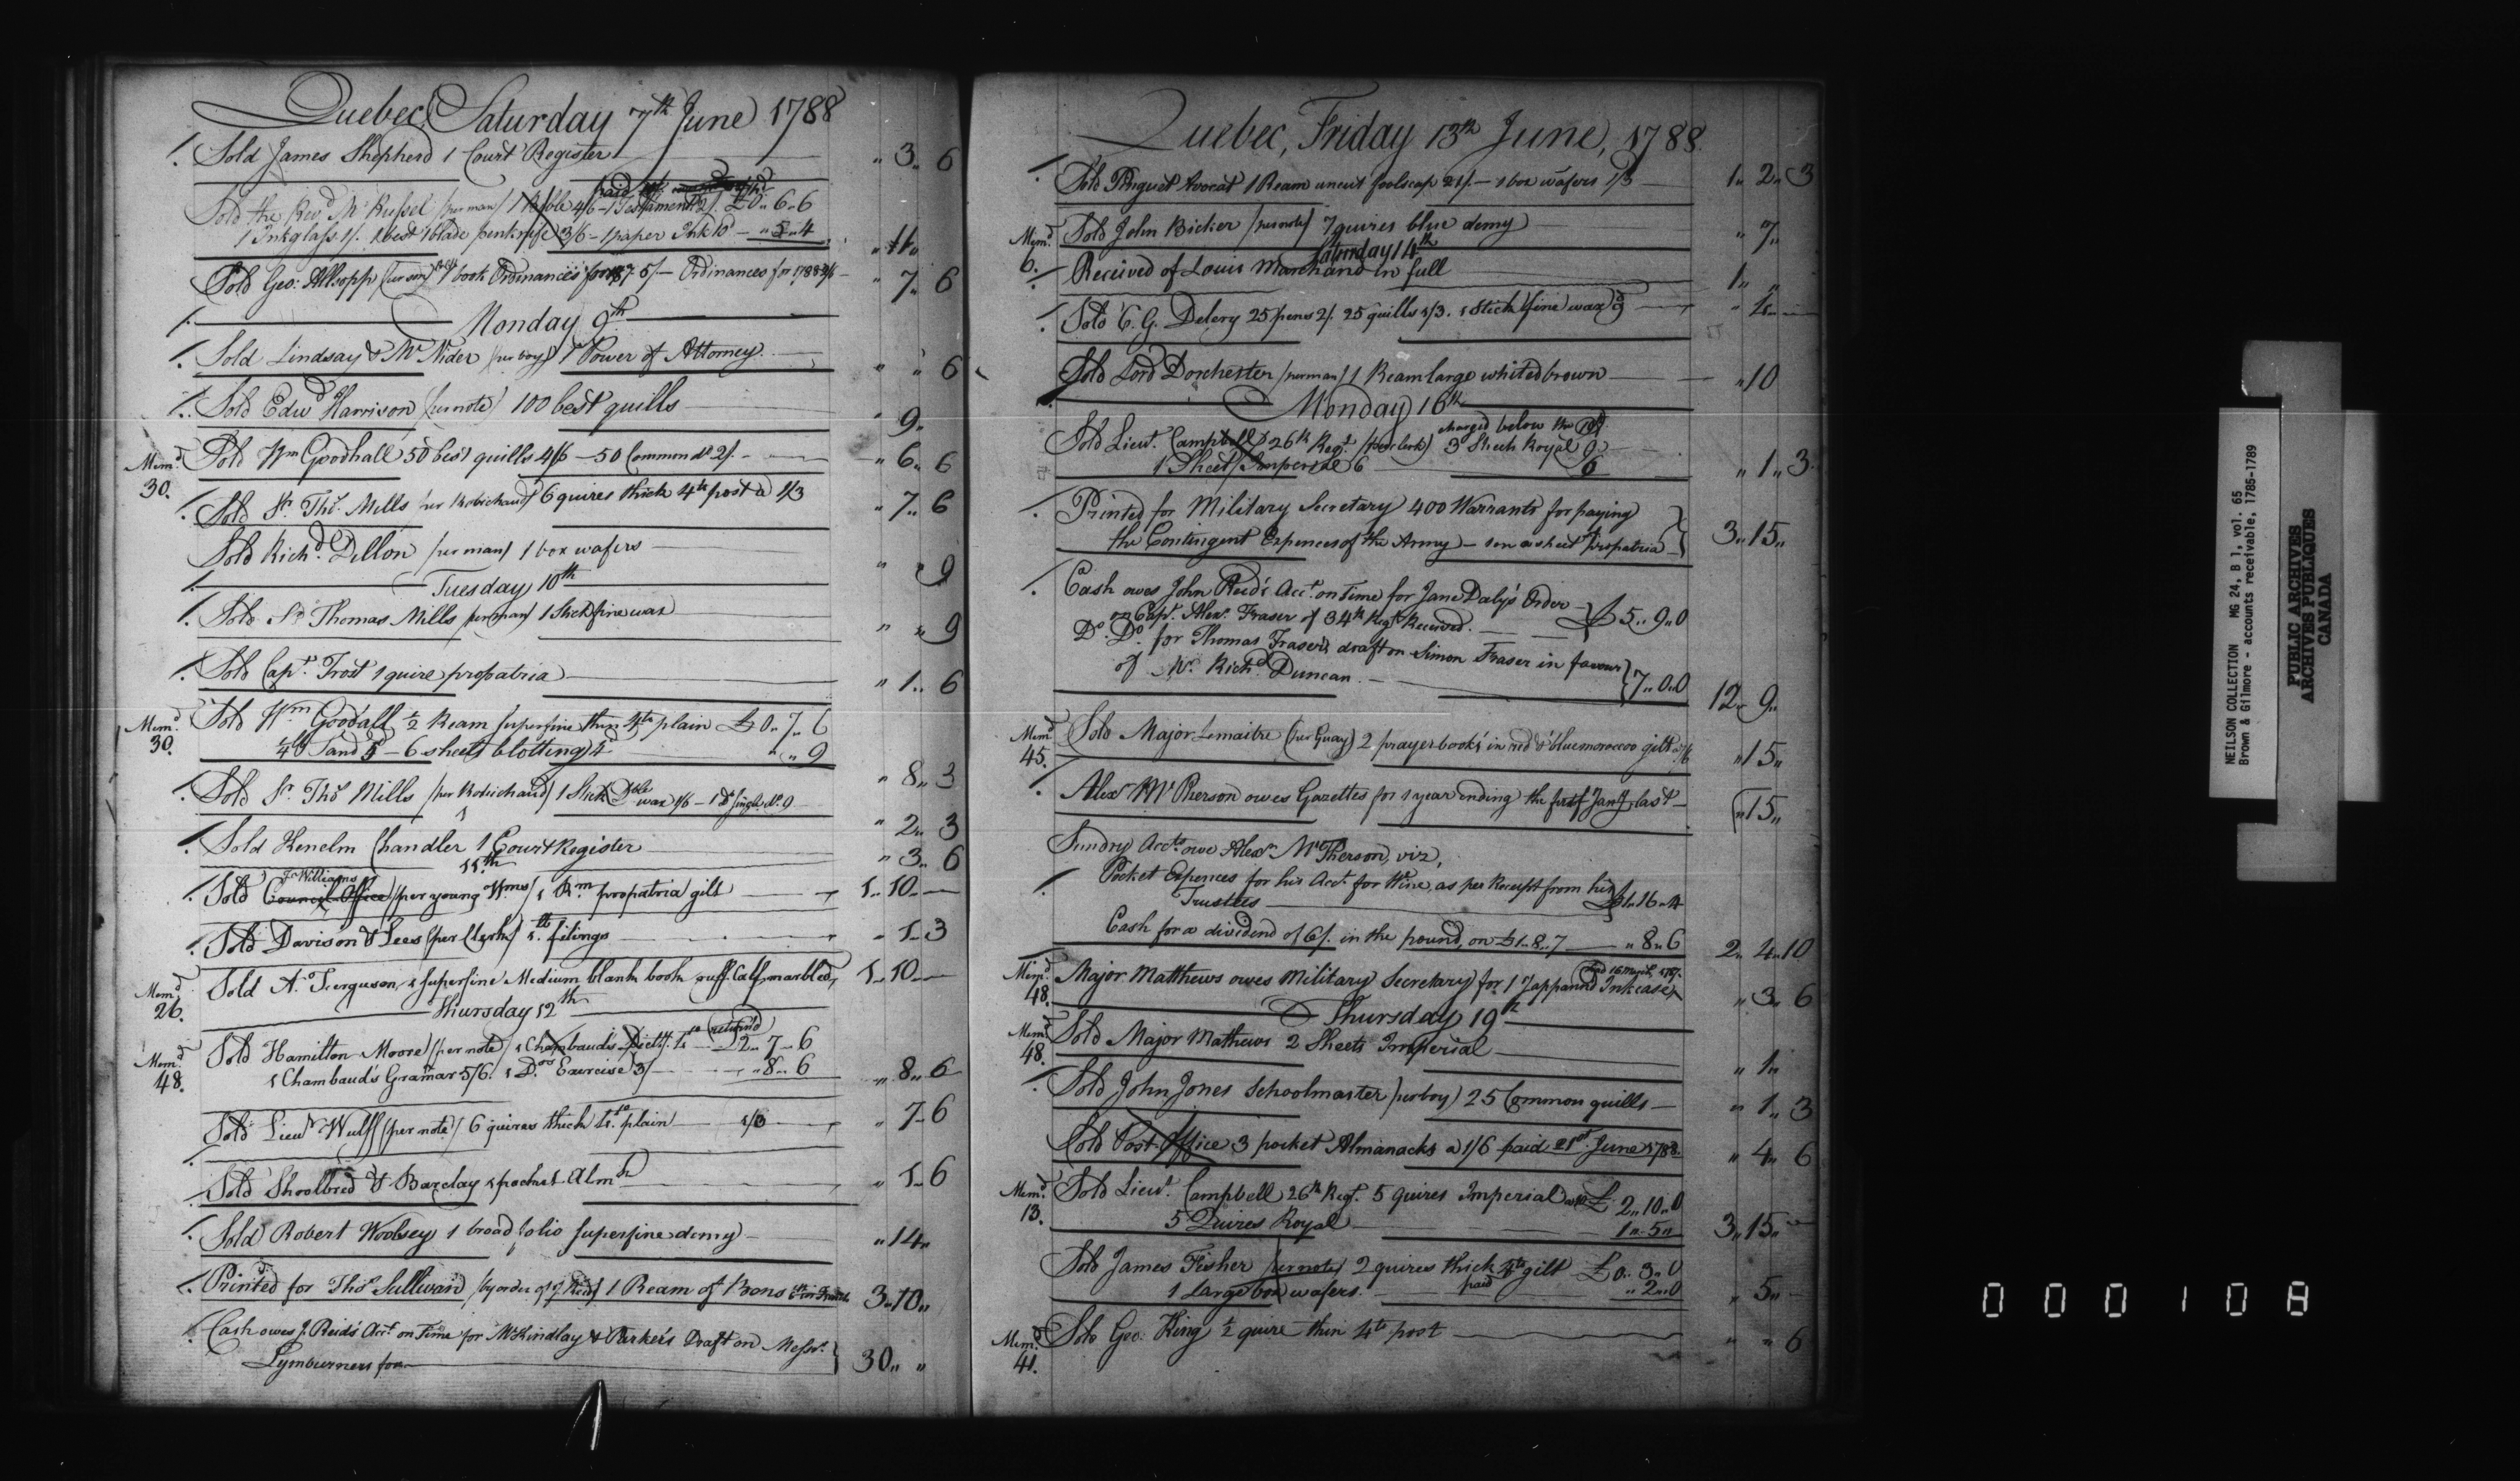 Quebec, Saturday 7th June 1788
/. Sold James Shepherd 1 Court Register " 3 " 6
Sold the Revd Mr Russel (per man) 1 Bible 4/6 - 1 Testament 2/. £0 " 6 " 6
1 Inkglass 1/. 1 best 1 blade penknife 3/6 - 1 paper Ink 10d - " 5 " 4 " 11 "
Sold Geo: Allsopp (per son) 1 book Ordinances for 1787 5/ - Ordinances for 1788 " 7 " 6
/. Monday 9th
/. Sold Lindsay & McNider (per boy) 1 Power of Attorney " " 6
/. Sold Edwd Harrison (per note) 100 best quills " 9 "
Memd 30. Sold Wm Goodhall 50 best quills 4/6 - 50 Common do 2/. " 6 " 6
/. Sold Sr Thos Mills per Robichaud 6 quires thick 4to post a 1/3 " 7 " 6
Sold Richd Dillon (per man) 1 box wafers " " 9
/. Tuesday 10th
/. Sold Sr Thomas Mills (per man) 1 Stick fine wax " " 9
/. Sold Capt Frost 1 quire propatria " 1 " 6
Memd 30. Sold Wm Goodall ½ Ream superfine thin 4to plain £0 " 7 " 6
Sand 5 - 6 sheets blotting 4d " " 9
" 8 " 3
/. Sold Sr Thos Mills (per Robichaud) 1 Stick Dble wax 1/6 - 1 do single do 9 " 2 " 3
/. Sold Kenelm Chandler 1 Court Register " 3 " 6
11th
Js Williams
/. Sold Council Office (per young Wms) 1 Rm propatria gilt 1 " 10 "
/. Sold Davison & Lees (per Clerk) 1 filings " 1 " 3
Memd 26. Sold A. Ferguson, 1 superfine Medium blank book ruff Calf marbled, 1 " 10 "
Thursday 12th
Sold Hamilton Moore (per note) 1 Chambauds Dicty. 4to (return'd) 2 " 7 " 6
Memd 48. 1 Chambaud's Gramar 5/6. 1 Do Exercise 3/ " 8 " 6 " 8 " 6
Sold Lieut Wulff (per note) 6 quires thick 4to plain 1/3 " 7 " 6
/. Sold Shoolbred & Barclay 1 pocket Almk " 1 " 6
/. Sold Robert Woolsey 1 broad folio superfine demy " 14 "
/. Printed for Thos Sullivan (by order of J. Reid) 1 Ream of Bons 3 " 10 "
/. Cash owes J. Reid's Acct on Time for McKindlay & Parker's Draft on Messrs
Lymburners for 30 " "
Quebec, Friday 13th June, 1788.
/. Sold Pinguet Avocat 1 Ream uncut foolscap 21/. - 1 box wafers 1/3 1 " 2 " 3
Memd 6. Sold John Bicker (per note) 7 quires blue demy " 7 "
Saturday 14th
/. Received of Louis Marchand in full 1 " "
/. Sold C. G. Delery 25 pens 2/. 25 quills 1/3. 1 Stick fine wax 9 " 4 "
Sold Lord Dorchester (per man) 1 Ream large whited brown " 10
/. Monday 16th
charged below the 19th
Sold Lieut. Campbell 26th Regt (per clerk) 3 Sheets Royal 9
1 Sheet Imperial 6 6 " 1 " 3
/. Printed for Military Secretary 400 Warrants for paying
the Contingent Expences of the Army - 1 on a sheet propatria 3 " 15 "
/. Cash owes John Reid's Acct on Time for Jane Daly's Order
on Capt. Alexr Fraser of 34th Regt Received. £5 " 9 " 0
Do Do for Thomas Fraser's draft on Simon Fraser in favour
of Mr Richd Duncan 7 " 0 " 0 12 " 9 "
Memd 45. Sold Major Lemaitre (per Guay) 2 prayer books in red & blue moroccoo gilt 7/6 " 15 "
/. Alexr McPherson owes Gazettes for 1 year ending the first Jany last " 15 "
Sundry Accts owe Alexr McPherson, viz,
/. Pocket Expences for his Acct for Wine, as per Receipt from his
Trustees £1 " 16 " 4
Cash for a dividend of 6/. in the pound, on £1 " 8 " 7 " 8 " 6 2 " 4 " 10
Memd 48. Major Matthews owes Military Secretary for 1 Jappann'd Inkcase " 3 " 6
Thursday 19th
Memd 48. Sold Major Mathews 2 Sheets Imperial " 1 "
/. Sold John Jones Schoolmaster (per boy) 25 Common quills " 1 " 3
Sold Post Office 3 pocket Almanacks a 1/6 paid 21st June 1788. " 4 " 6
Memd 13. Sold Lieut. Campbell 26th Regt. 5 quires Imperial £2 " 10 " 0
5 Quires Royal 1 " 5 " 3 " 15 "
Sold James Fisher (per note) 2 quires thick 4to gilt £0 " 3 " 0
1 Large box wafers. paid " 2 " 0 " 5 "
Memd 41. Sold Geo: King ½ quire thin 4to post " " 6
NEILSON COLLECTION MG 24, B 1, vol. 65
Brown & Gilmore - accounts receivable, 1785-1789
PUBLIC ARCHIVES
ARCHIVES PUBLIQUES
CANADA
000108